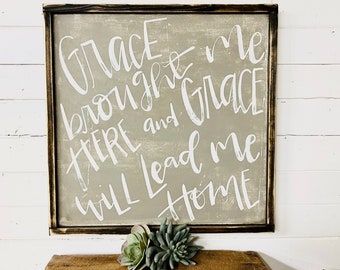 GRACE
brought me
HERE and GRACE
will Lead me
HOME